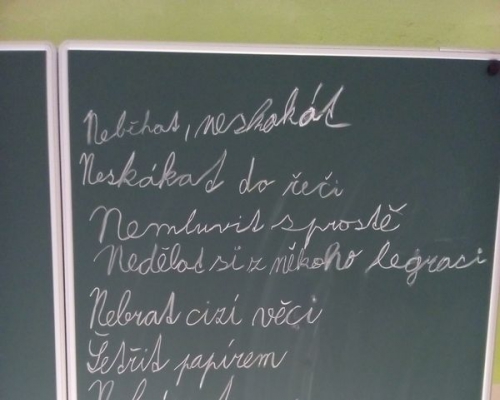 Neběhat, neskákat
Neskákat do řeči
Nemluvit sprostě
Nedělat si z někoho legraci
Nebrat cizí věci
Šetřit papírem